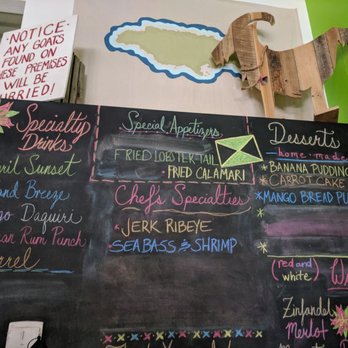 NOTICE
ANY GOATS
FOUND ON
THESE PREMISES
WILL BE
CURRIED!
Specialty
Drinks
Sunset
Breeze
Daquiri
Rum Punch
Special Appetizers
FRIED LOBSTER TAIL
FRIED CALAMARI
Chef's Specialties
JERK RIBEYE
SEA BASS & SHRIMP
Desserts
home-made
BANANA PUDDING
CARROT CAKE
MANGO BREAD PU
(red and
white)
Zinfandel
Merlot